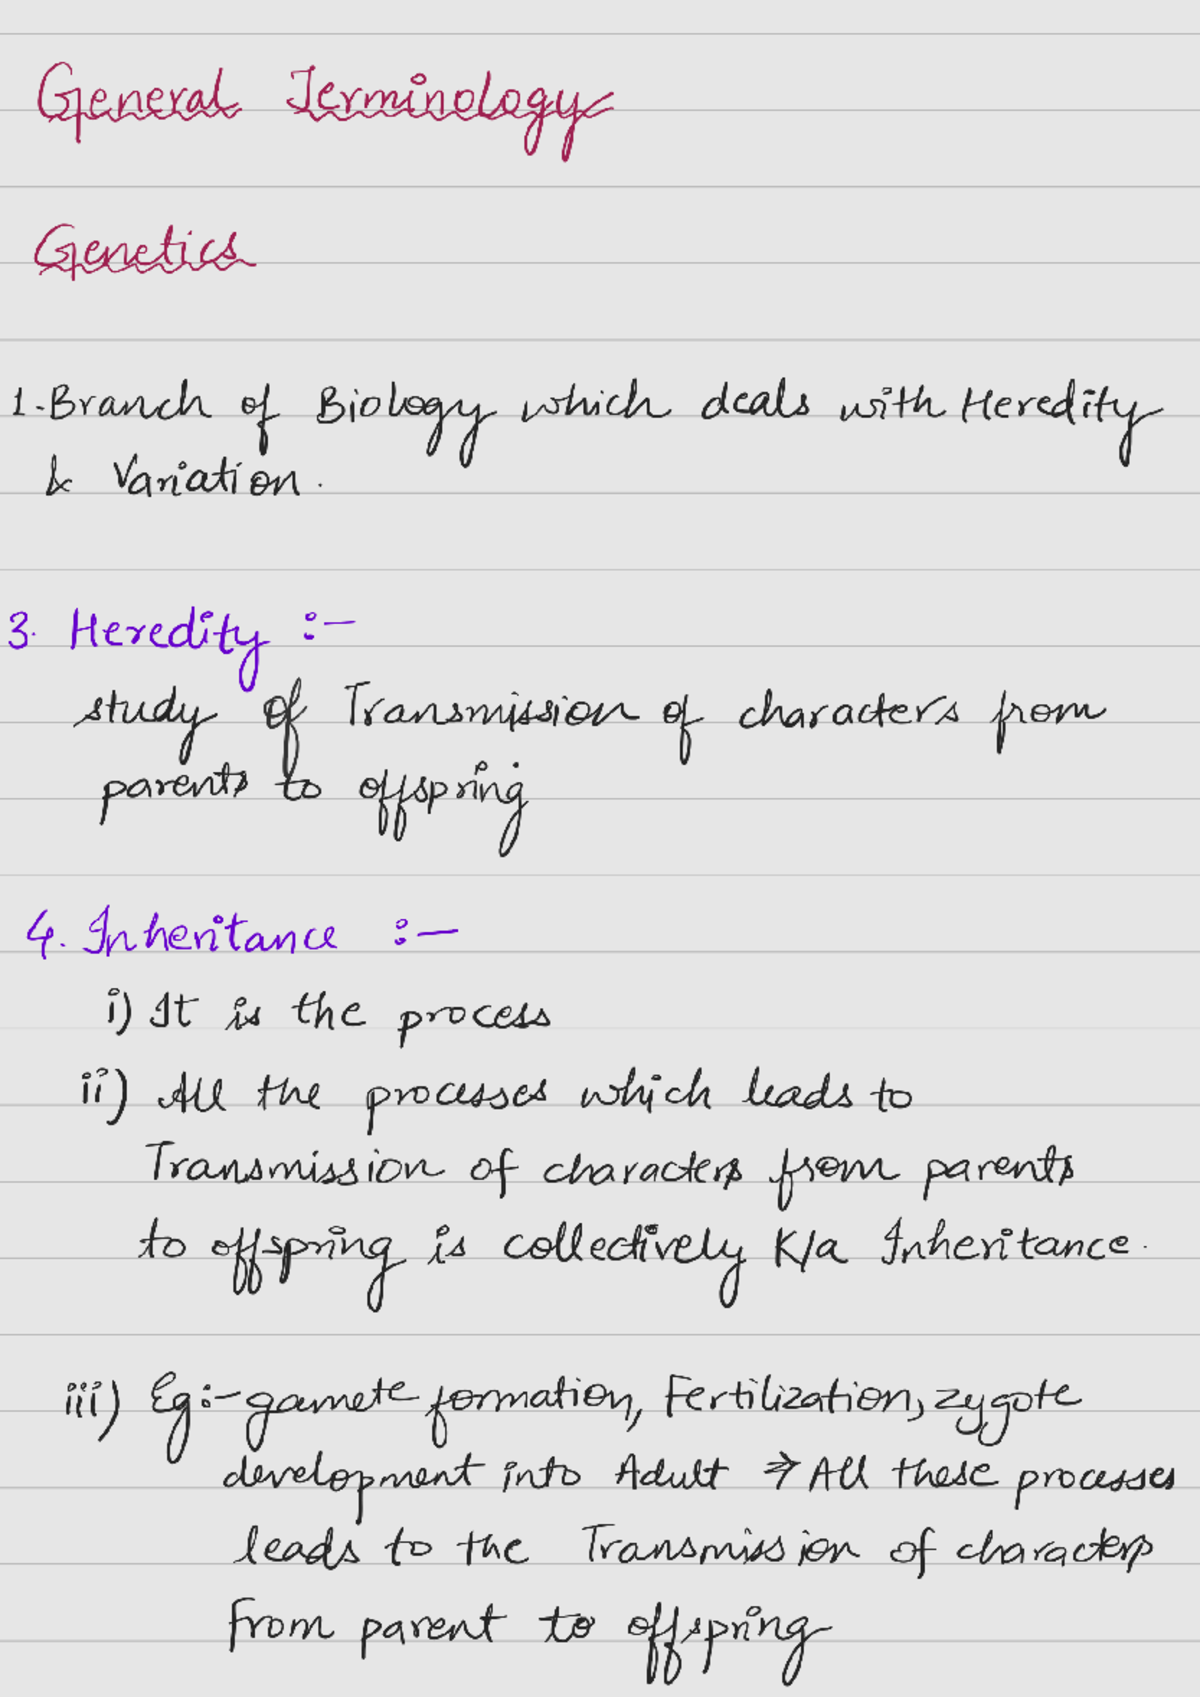 General Terminology
Genetics
1. Branch of Biology which deals with Heredity
& Variation.
3. Heredity :-
study of Transmission of characters from
parents to offspring
4. Inheritance :-
i) It is the process
ii) All the processes which leads to
Transmission of characters from parents
to offspring is collectively K/a Inheritance.
iii) Eg:- gamete formation, Fertilization, zygote
development into Adult → All these processes
leads to the Transmission of characters
from parent to offspring